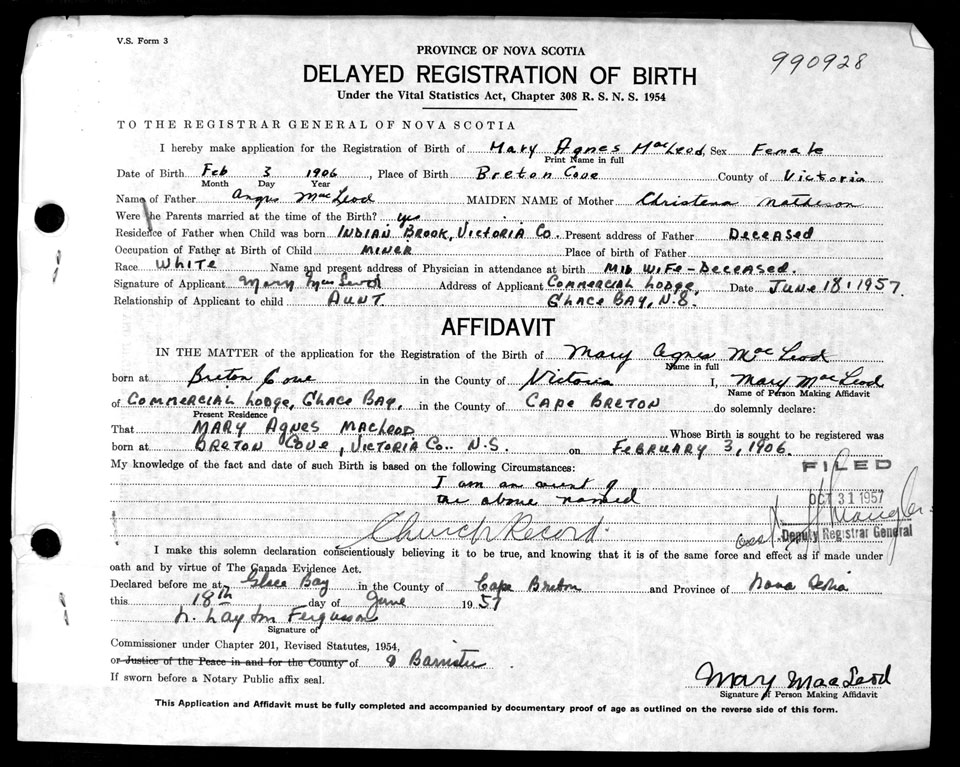 V.S. Form 3
990928
PROVINCE OF NOVA SCOTIA
DELAYED REGISTRATION OF BIRTH
Under the Vital Statistics Act, Chapter 308 R. S. N. S. 1954
TO THE REGISTRAR GENERAL OF NOVA SCOTIA
I hereby make application for the Registration of Birth of Mary Agnes MacLeod, Sex Female
Print Name in full
Date of Birth Feb 3 1906, Place of Birth Breton Cove County of Victoria
Month Day Year
Name of Father Angus MacLeod MAIDEN NAME of Mother Christena Matheson
Were the Parents married at the time of the Birth? yes
Residence of Father when Child was born INDIAN BROOK, VICTORIA CO. Present address of Father DECEASED
Occupation of Father at Birth of Child MINER Place of birth of Father
Race WHITE Name and present address of Physician in attendance at birth MID WIFE - DECEASED.
Signature of Applicant Mary MacLeod Address of Applicant COMMERCIAL LODGE, Date JUNE 18, 1957.
Relationship of Applicant to child AUNT GLACE BAY, N.S.
AFFIDAVIT
IN THE MATTER of the application for the Registration of the Birth of Mary Agnes MacLeod
Name in full
born at Breton Cove in the County of Victoria I, Mary MacLeod
Name of Person Making Affidavit
of COMMERCIAL LODGE, GLACE BAY, in the County of CAPE BRETON do solemnly declare:
Present Residence
That MARY AGNES MACLEOD Whose Birth is sought to be registered was
born at BRETON COVE, VICTORIA CO. N.S. on FEBRUARY 3, 1906.
My knowledge of the fact and date of such Birth is based on the following Circumstances:
I am an aunt of
the above named
Church Record.
FILED
OCT 31 1957
Deputy Registrar General
I make this solemn declaration conscientiously believing it to be true, and knowing that it is of the same force and effect as if made under
oath and by virtue of The Canada Evidence Act.
Declared before me at Glace Bay in the County of Cape Breton and Province of Nova Scotia
this 18th day of June 1957
N. Layton Fergusson
Signature of
Commissioner under Chapter 201, Revised Statutes, 1954,
or Justice of the Peace in and for the County of a Barrister
If sworn before a Notary Public affix seal.
Mary MacLeod
Signature of Person Making Affidavit
This Application and Affidavit must be fully completed and accompanied by documentary proof of age as outlined on the reverse side of this form.